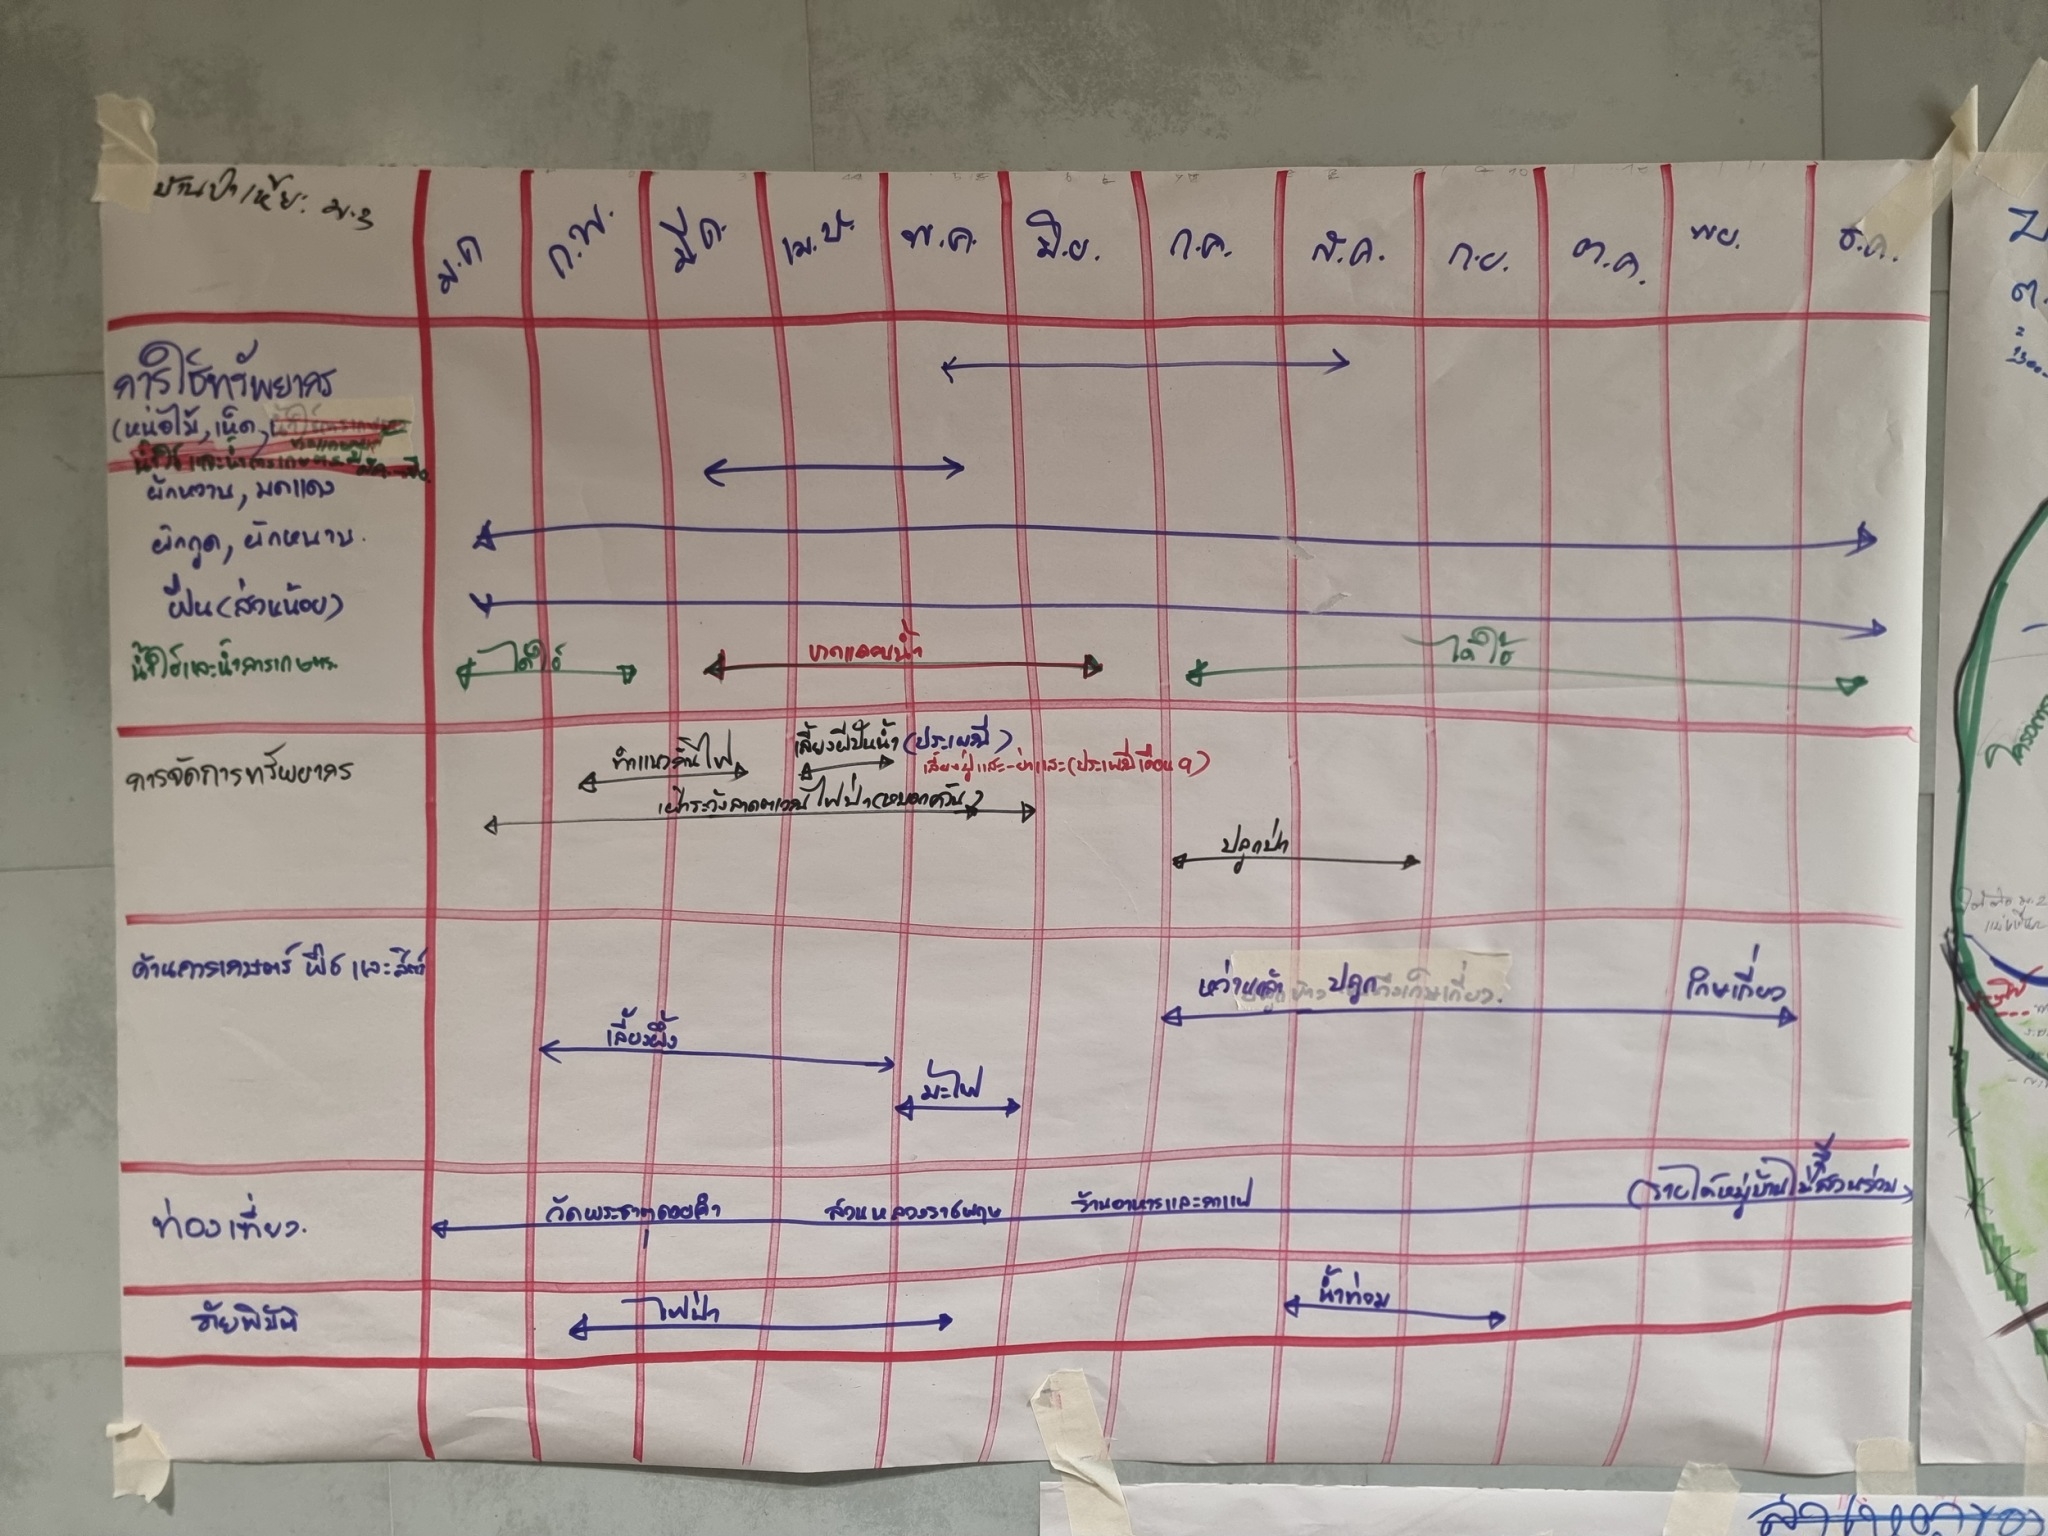 บ้านป่าเหียะ ม.3
ม.ค ก.พ. มี.ค. เม.ษ. พ.ค. มิ.ย. ก.ค. ส.ค. ก.ย. ต.ค. พย. ธ.ค.
การใช้ทรัพยากร
(หน่อไม้, เห็ด,
ผักหวาน, มดแดง
ผักกูด, ผักหนาม.
ฟืน(ส่วนน้อย)
น้ำใช้และน้ำการเกษตร
ได้ใช้ ขาดแคลนน้ำ ได้ใช้
การจัดการทรัพยากร
ทำแนวกันไฟ เลี้ยงผีปีหน้ำ (ประเพณี)
เลี้ยงปู่แสะ-ย่าแสะ(ประเพณีเดือน 9)
เฝ้าระวังลาดตระเวณไฟป่า(หมอกควัน)
ปลูกป่า
ด้านการเกษตร์ พืช และสัตว์
หว่านกล้า ปลูก เก็บเกี่ยว
เลี้ยงผึ้ง
มะไฟ
ท่องเที่ยว.
วัดพระธาตุดอยคำ สวนหลวงราชพฤกษ ร้านอาหารและกาแฟ (รายได้หมู่บ้านไม่มีส่วนร่วม
ภัยพิบัติ
ไฟป่า น้ำท่วม